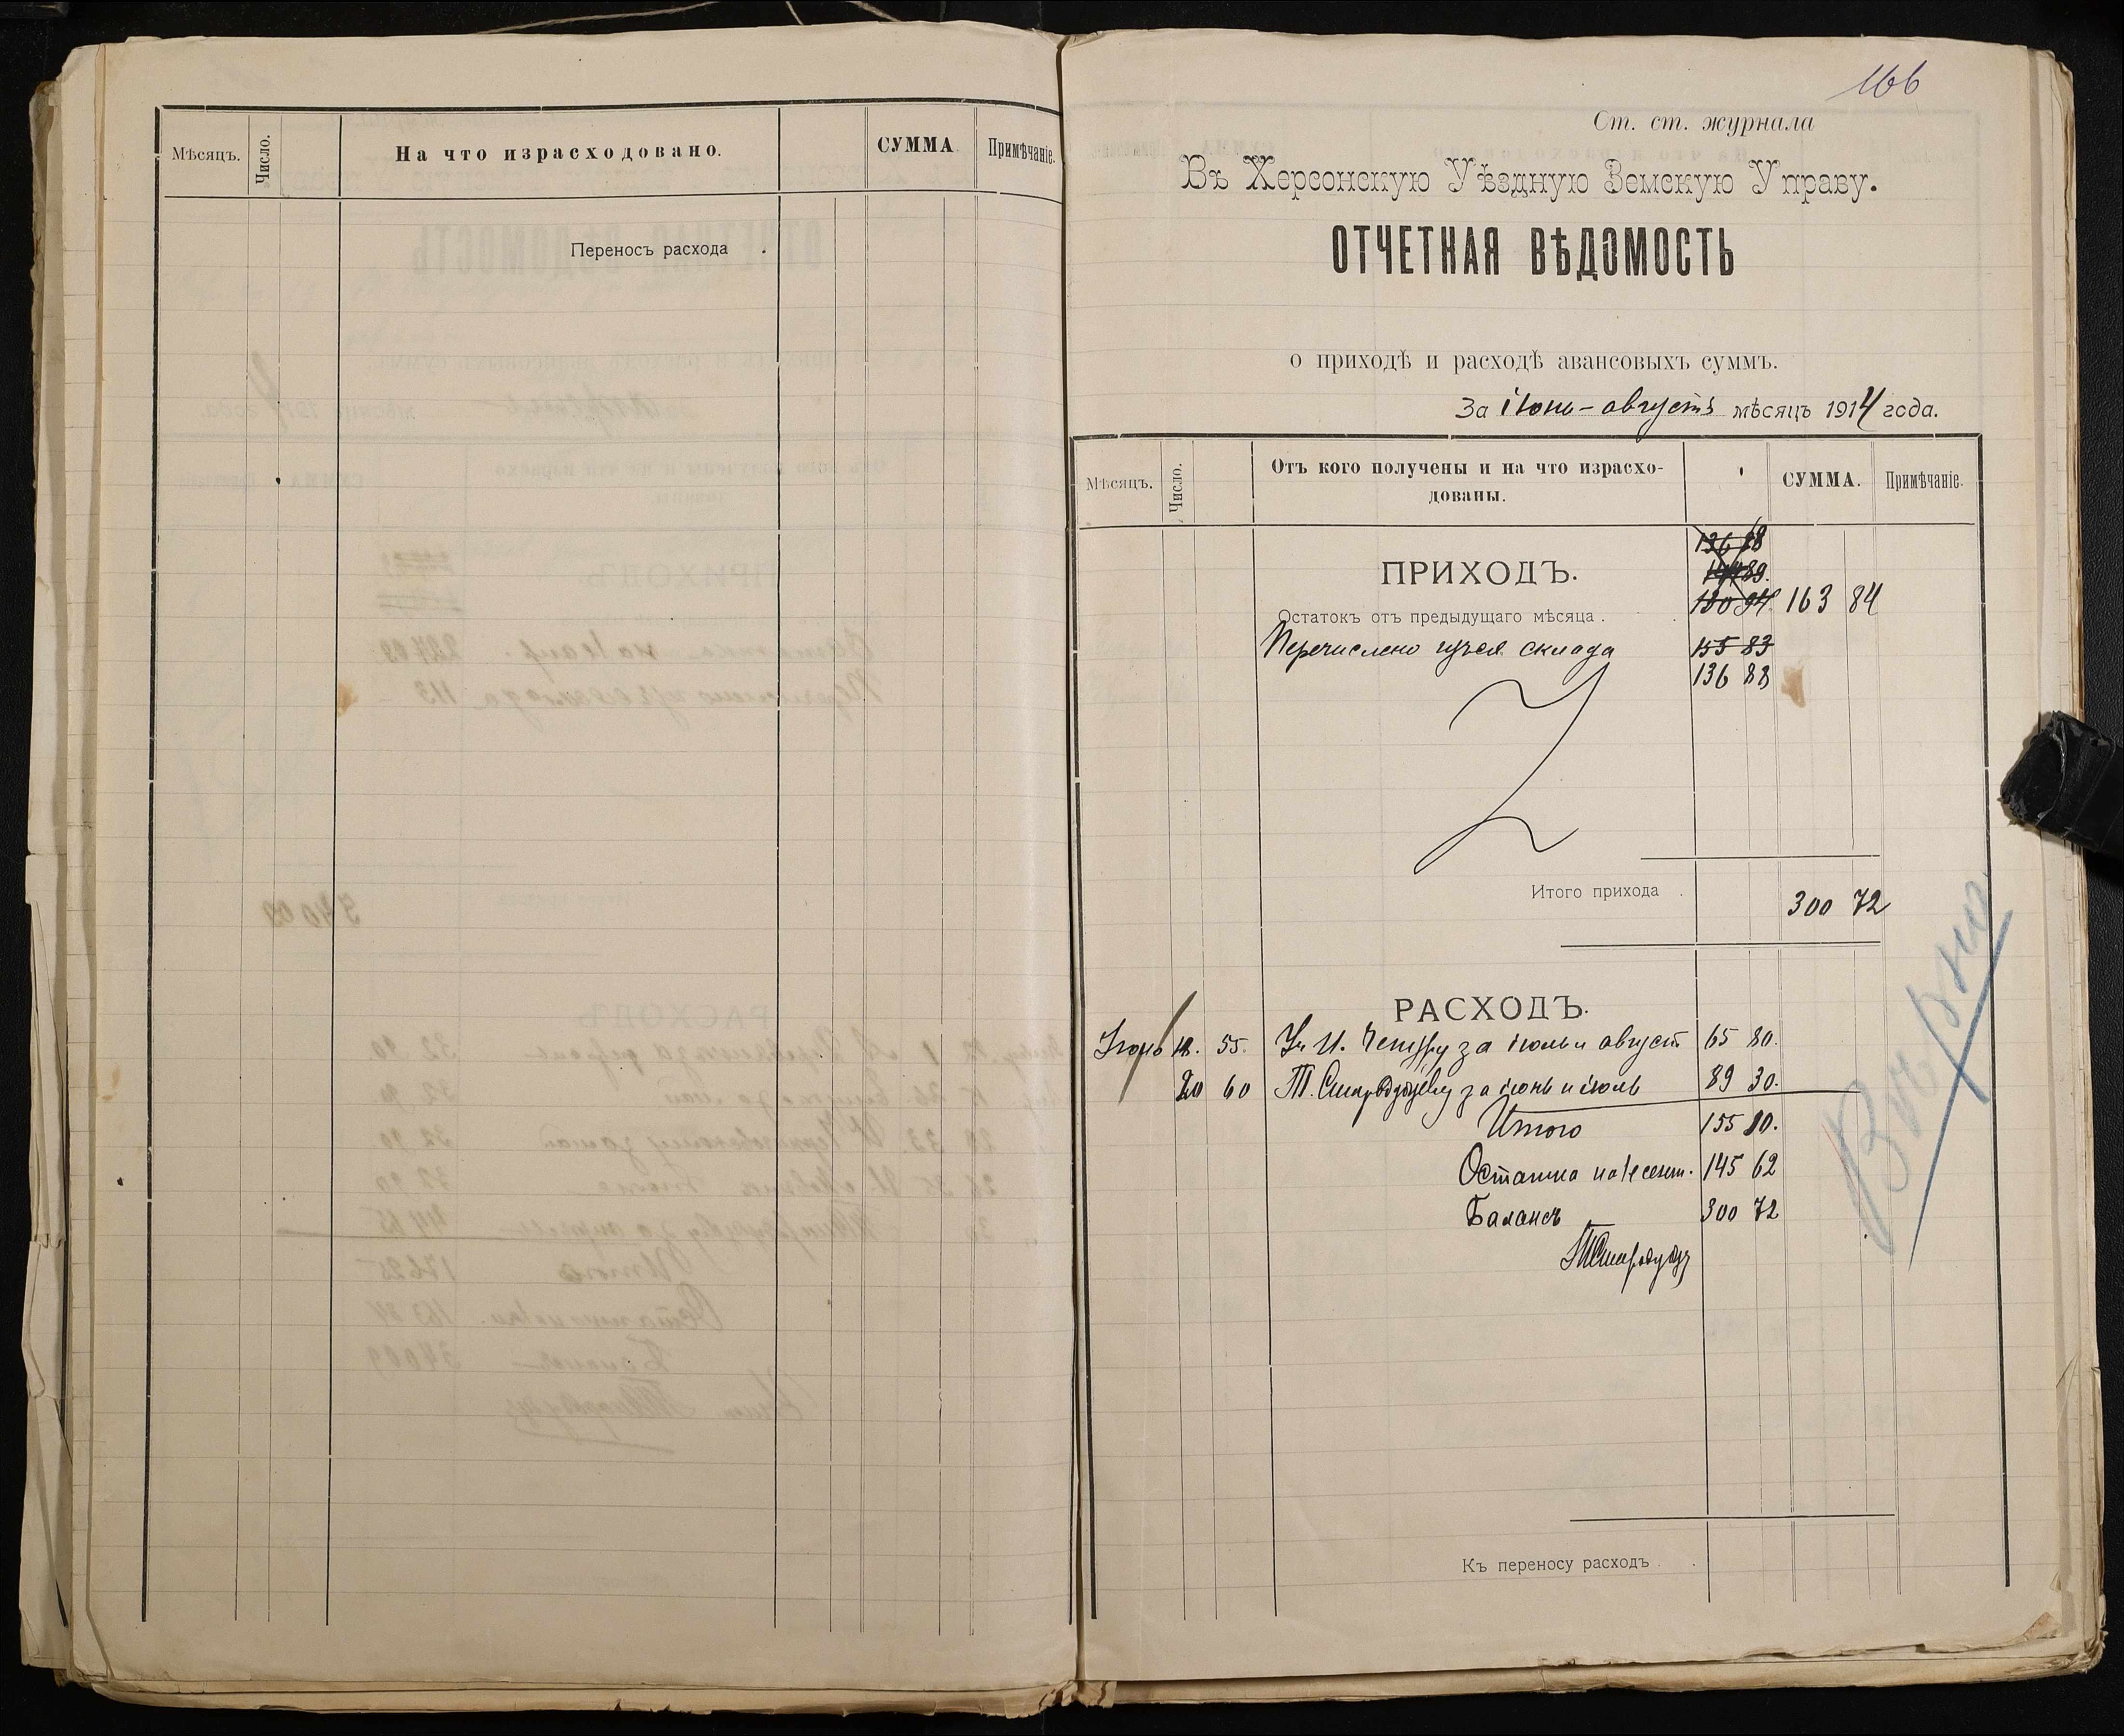 Мѣсяцъ.
Число.
На что израсходовано.
СУММА
Примѣчаніе.
Переносъ расхода .
166
Ст. ст. журнала
Въ Херсонскую Уѣздную Земскую Управу.
ОТЧЕТНАЯ ВѢДОМОСТЬ
о приходѣ и расходѣ авансовыхъ суммъ.
За іюнь - августъ мѣсяцъ 1914 года.
Мѣсяцъ.
Число.
Отъ кого получены и на что израсхо-
дованы.
СУММА.
Примѣчаніе.
136 88
ПРИХОДЪ.
Остатокъ отъ предыдущаго мѣсяца . 130 94 163 84
Перечислено склада 155 83
136 88
Итого прихода . 300 72
РАСХОДЪ.
Іюнь 18. 55. за іюль и август 65 80.
20 60 Т. за іюнь и іюль 89 30.
Итого 155 10.
Остатка на 1 сент. 145 62
Балансъ 300 72
Вѣрно
Къ переносу расходъ . .